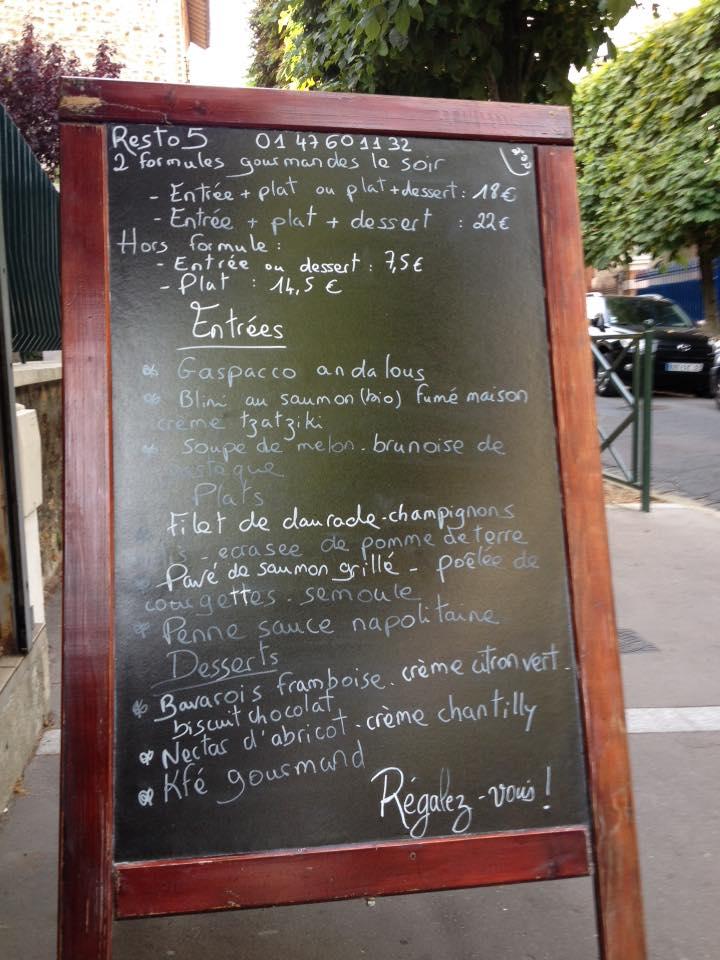 Resto 5 01 47 60 11 32
2 formules gourmandes le soir
- Entrée + plat ou plat + dessert : 18€
- Entrée + plat + dessert : 22€
Hors formule :
- Entrée ou dessert : 7,5€
- Plat : 14,5 €
Entrées
Gaspacco andalous
Blini au saumon (bio) fumé maison
crème tzatziki
Soupe de melon. brunoise de
Plats
Filet de daurade - champignons
- ecrasee de pomme de terre
Pavé de saumon grillé - poêlée de
courgettes. semoule
Penne sauce napolitaine
Desserts
Bavarois framboise. crème citron vert.
biscuit chocolat
Nectar d'abricot. crème chantilly
Kfé gourmand
Régalez-vous !